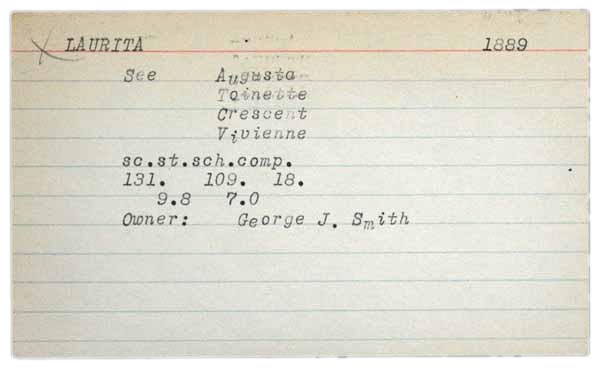 LAURITA 1889
See Augusta
Toinette
Crescent
Vivienne
sc.st.sch.comp.
131. 109. 18.
9.8 7.0
Owner: George J. Smith